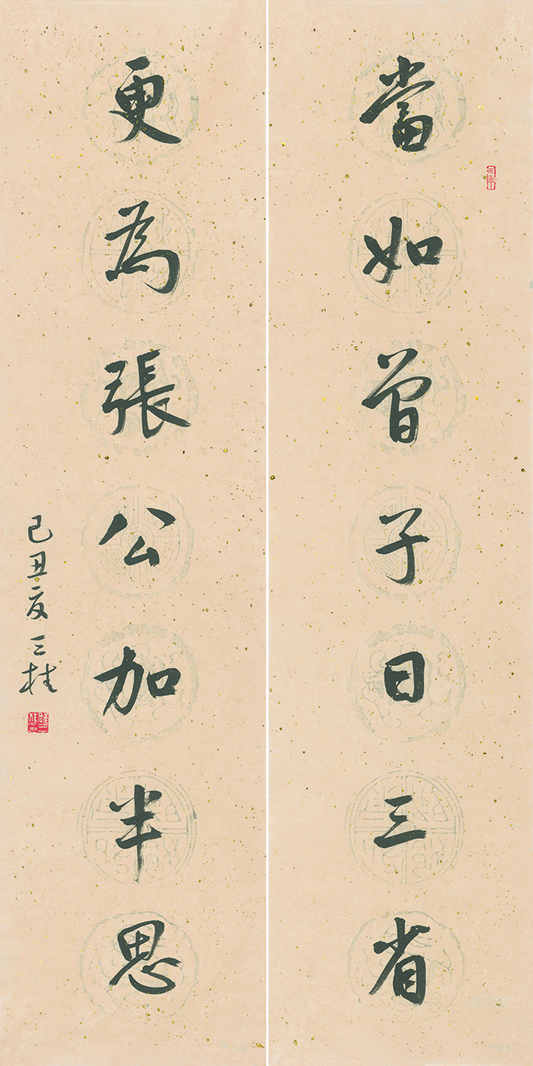 當如曾子日三省
更為張公加半思
己丑夏三桂